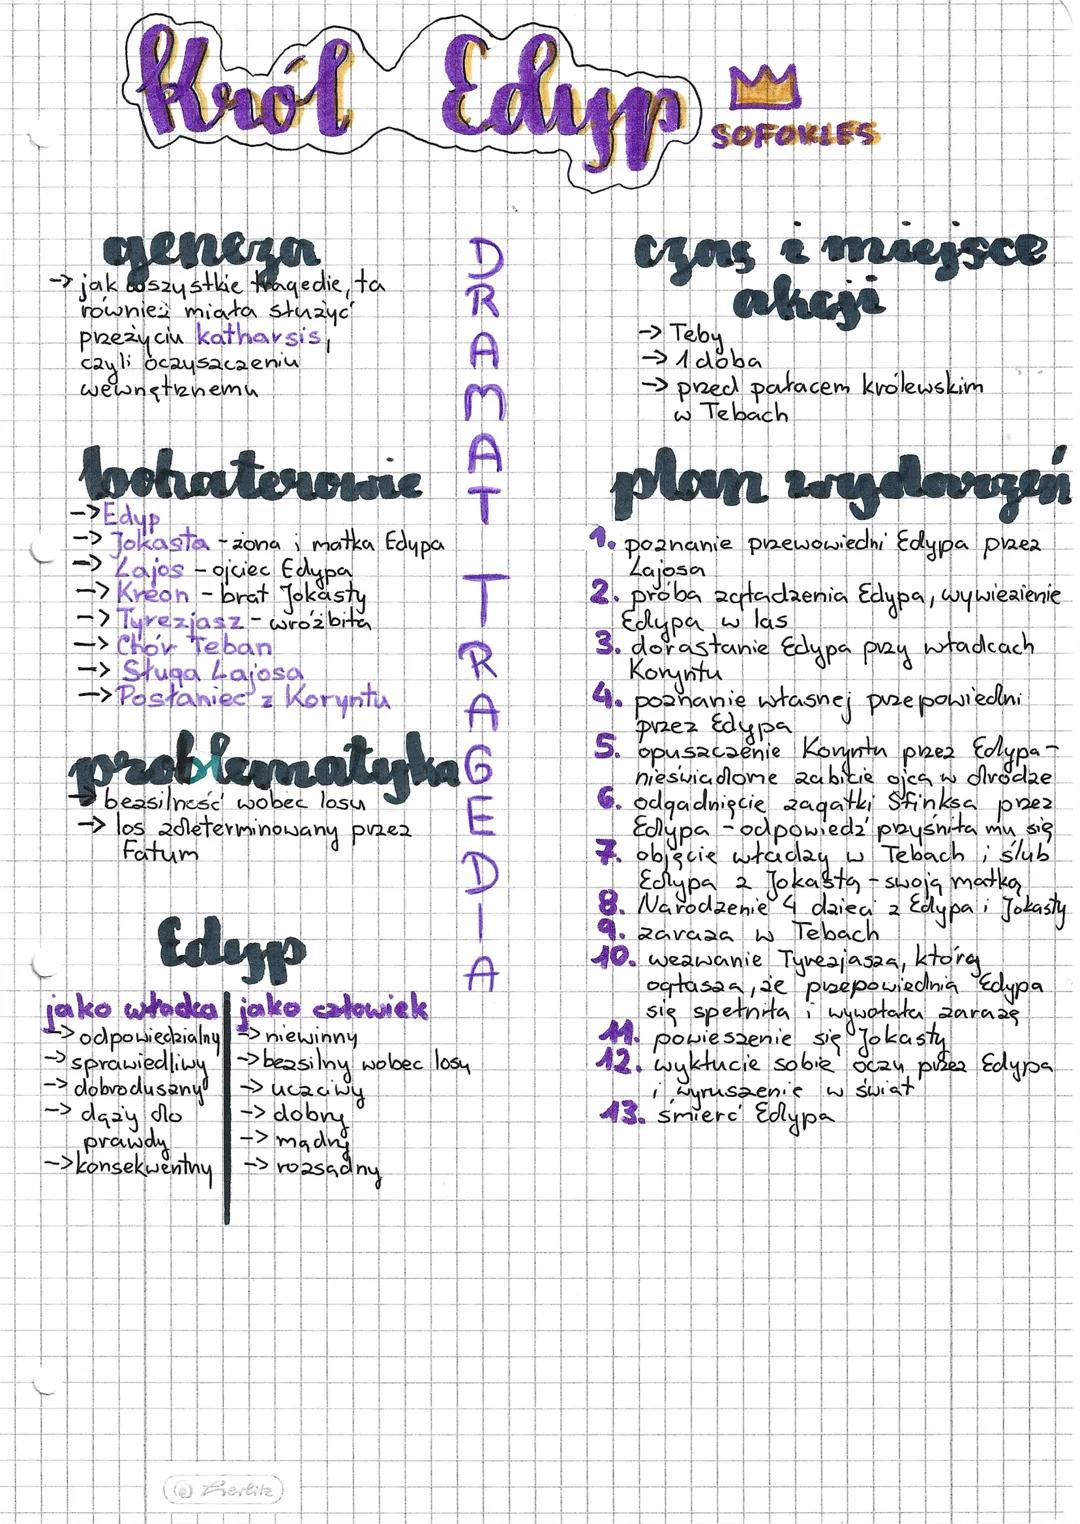 Król Edyp
SOFOKLES
geneza
-> jak wszystkie tragedie, ta
również miała służyć
przeżyciu katharsis,
czyli oczyszczeniu
wewnętrznemu
bohaterowie
-> Edyp
-> Jokasta - żona i matka Edypa
-> Lajos - ojciec Edypa
-> Kreon - brat Jokasty
-> Tyrezjasz - wróżbita
-> Chór Teban
-> Sługa Lajosa
-> Posłaniec z Koryntu
problematyka
-> bezsilność wobec losu
-> los zdeterminowany przez
Fatum
Edyp
jako władca
-> odpowiedzialny
-> sprawiedliwy
-> dobroduszny
-> dąży do
prawdy
-> konsekwentny
jako człowiek
-> niewinny
-> bezsilny wobec losu
-> uczciwy
-> dobry
-> mądry
-> rozsądny
DRAMAT TRAGEDIA
czas i miejsce
akcji
-> Teby
-> 1 doba
-> przed pałacem królewskim
w Tebach
plan wydarzeń
1. poznanie przewowiedni Edypa przez
Lajosa
2. próba zgładzenia Edypa, wywiezienie
Edypa w las
3. dorastanie Edypa przy władcach
Koryntu
4. poznanie własnej przepowiedni
przez Edypa
5. opuszczenie Koryntu przez Edypa -
nieświadome zabicie ojca w drodze
6. odgadnięcie zagatki Sfinksa przez
Edypa - odpowiedź przyśniła mu się
7. objęcie władzy w Tebach i ślub
Edypa z Jokastą - swoją matką
8. Narodzenie 4 dzieci z Edypa i Jokasty
9. zaraza w Tebach
10. wezwanie Tyrezjasza, który
ogłasza, że przepowiednia Edypa
się spełniła i wywołała zarazę
11. powieszenie się Jokasty
12. wykłucie sobie oczu przez Edypa
i wyruszenie w świat
13. śmierć Edypa
Herlitz